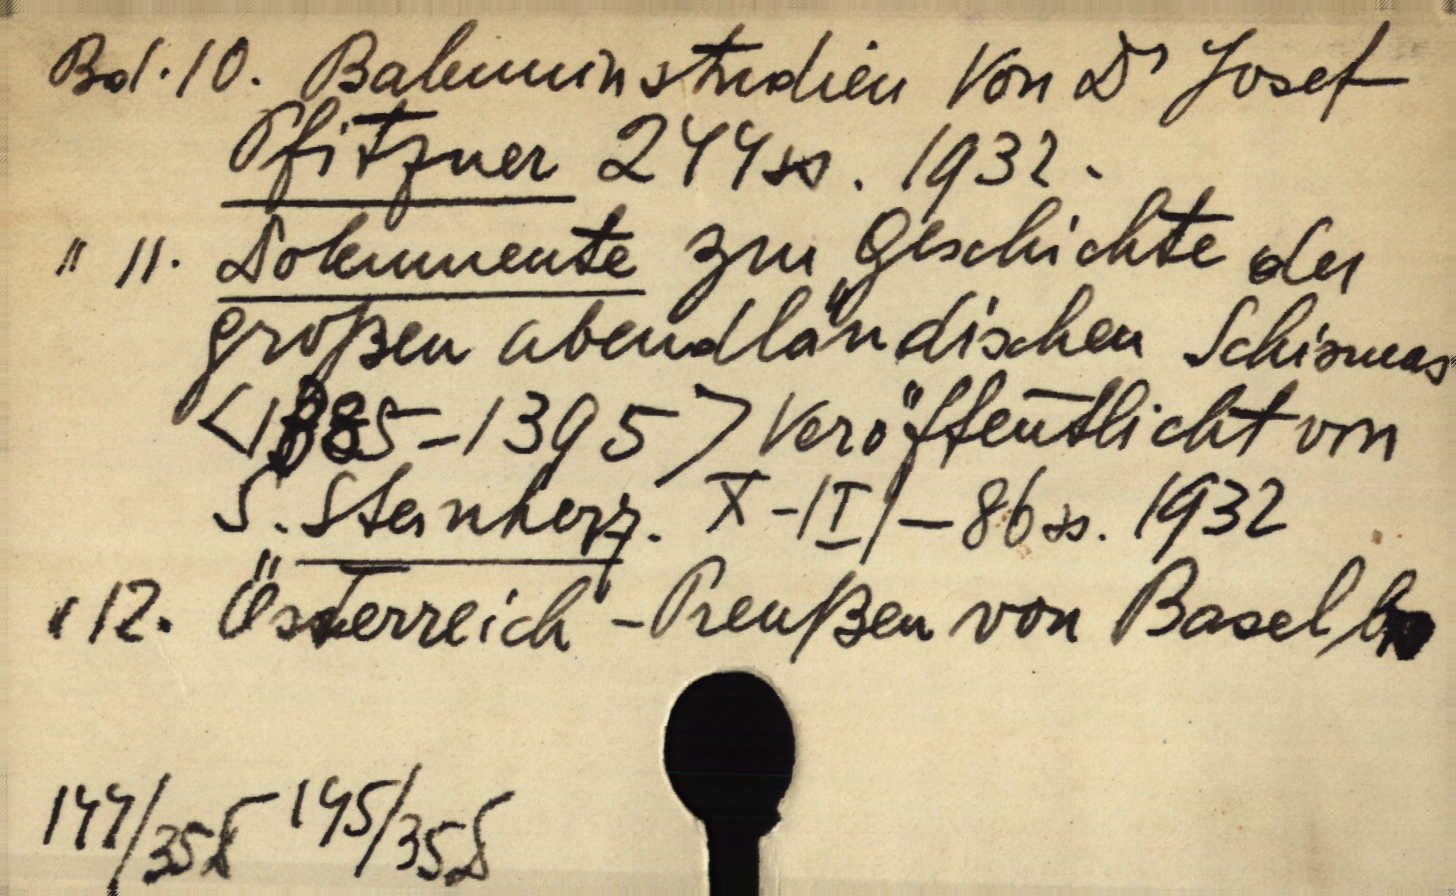 Bd. 10. Bakuninstudien von Dr Josef
Pfitzner 244 ss. 1932.
" 11. Dokumente zur Geschichte des
großen abendländischen Schismas
<1385-1395> Veröffentlicht von
S. Steinherz. X-II/-86 ss. 1932
" 12. Österreich-Preußen von Basel
144/35 145/35